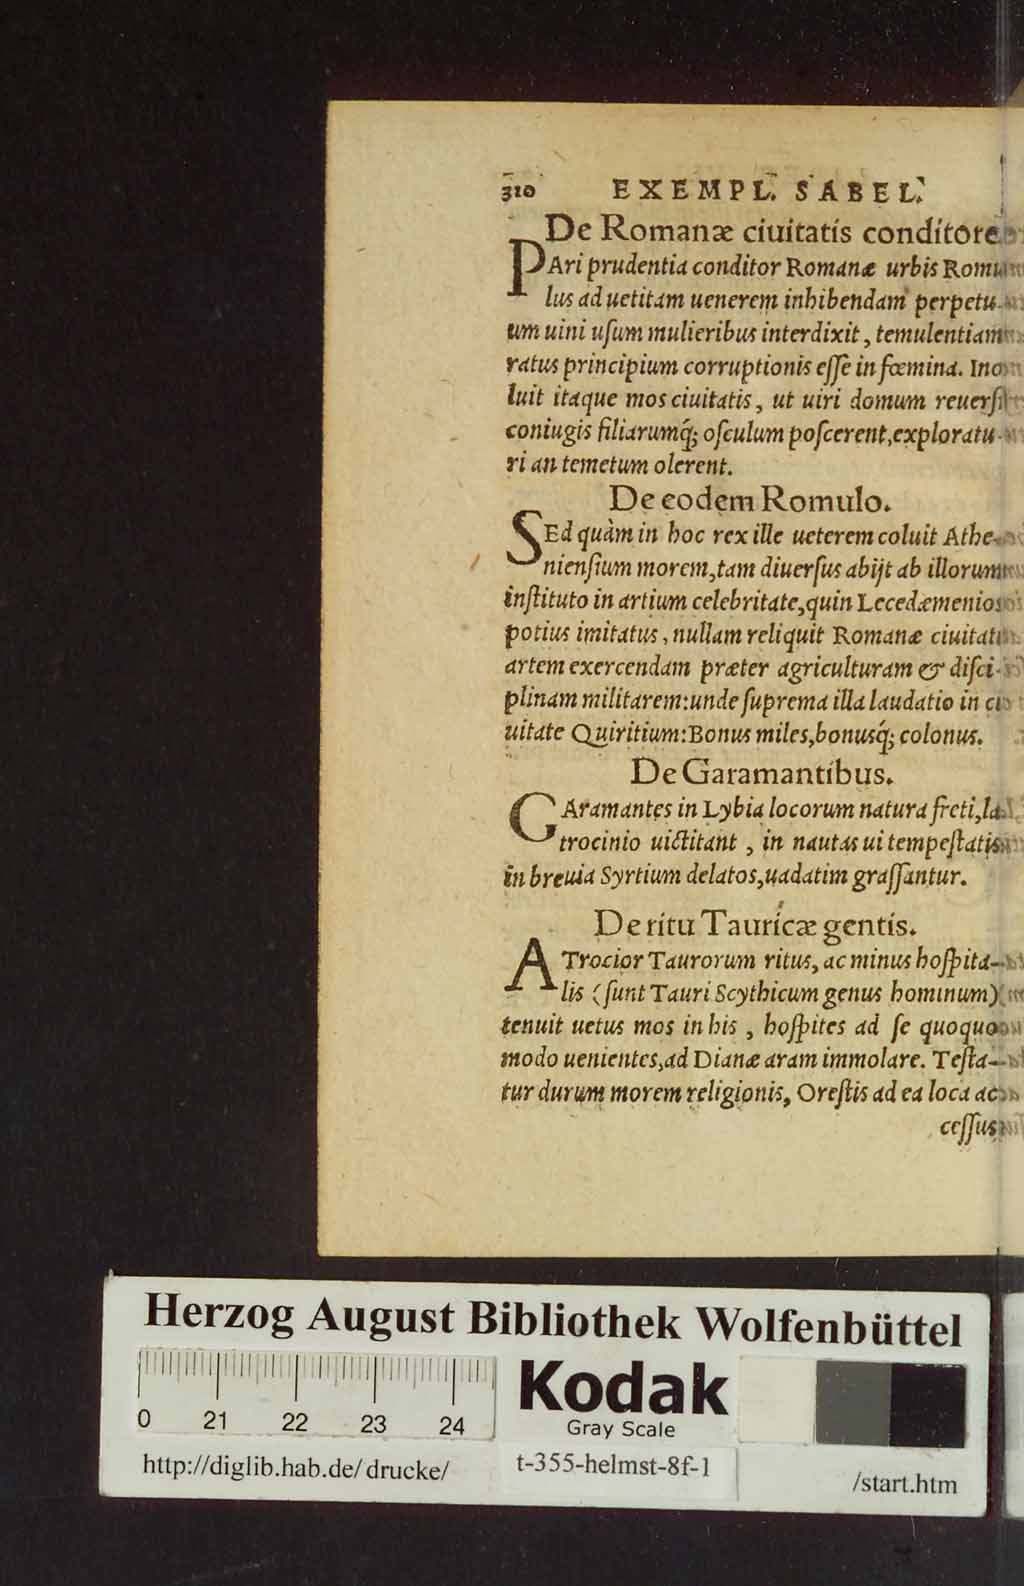 310 EXEMPL. SABEL.
De Romanæ ciuitatis conditore
PAri prudentia conditor Romanæ urbis Romu
lus ad uetitam uenerem inhibendam perpetu-
um uini uſum mulieribus interdixit, temulentiam
ratus principium corruptionis eſſe in fœmina. Ino
luit itaque mos ciuitatis, ut uiri domum reuerſi
coniugis filiarumq́; oſculum poſcerent, exploratu-
ri an temetum olerent.
De eodem Romulo.
SEd quàm in hoc rex ille ueterem coluit Athe-
nienſium morem, tam diuerſus abijt ab illorum
inſtituto in artium celebritate, quin Lecedæmenios
potius imitatus, nullam reliquit Romanæ ciuitati
artem exercendam præter agriculturam & diſci-
plinam militarem: unde ſuprema illa laudatio in ci
uitate Quiritium: Bonus miles, bonusq́; colonus.
De Garamantibus.
GAramantes in Lybia locorum natura freti, la
trocinio uictitant, in nautas ui tempeſtatis
in breuia Syrtium delatos, uadatim graſſantur.
De ritu Tauricæ gentis.
ATrocior Taurorum ritus, ac minus hoſpita-
lis (ſunt Tauri Scythicum genus hominum)
tenuit uetus mos in his, hoſpites ad ſe quoquo
modo uenientes, ad Dianæ aram immolare. Teſta-
tur durum morem religionis, Oreſtis ad ea loca ac
ceſſus
Herzog August Bibliothek Wolfenbüttel
0 21 22 23 24
Kodak
Gray Scale
http://diglib.hab.de/drucke/ t-355-helmst-8f-1 /start.htm